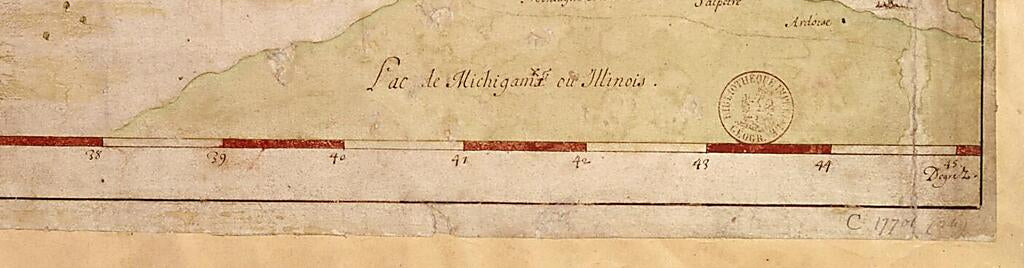 Salpetre
Ardoise
Lac de Michiganis ou Illinois.
BIBLIOTHEQUE IMP.
GEOGR.
38 39 40 41 42 43 44 45
Degrez.
C